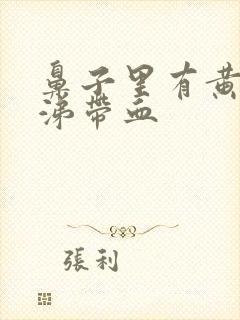 鼻子里有黄
涕帶血
張利